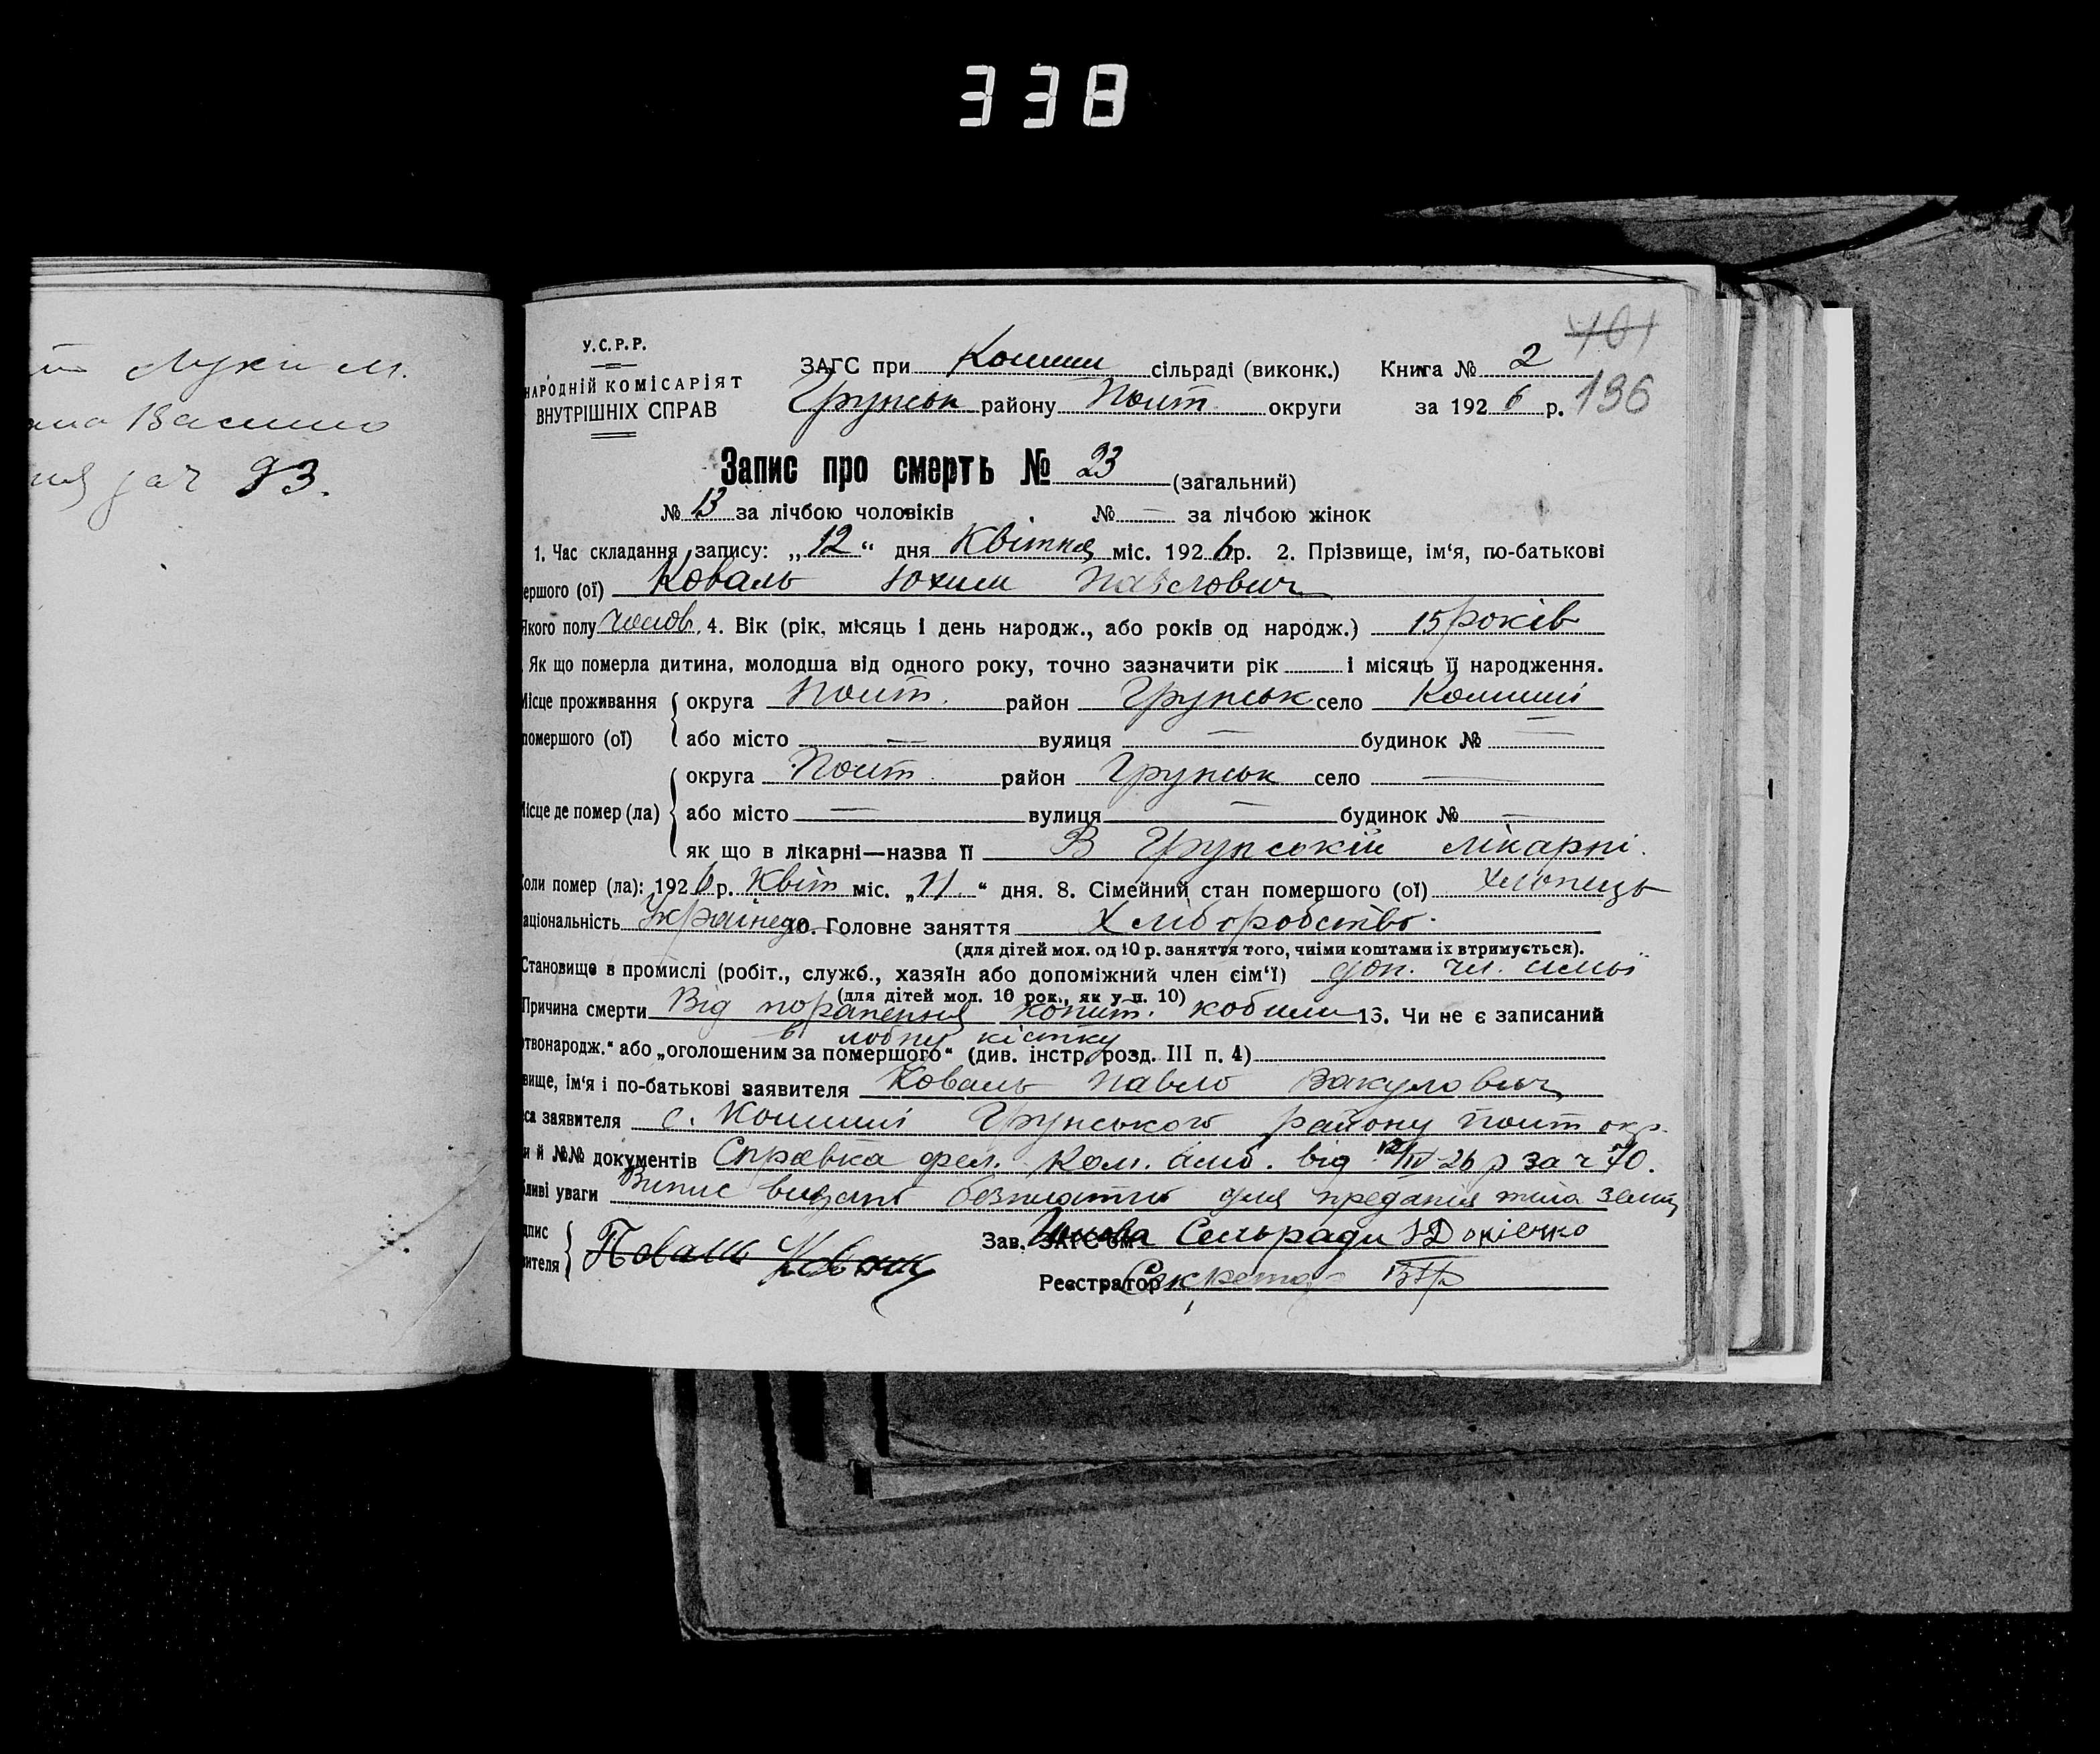 338
Луки М.
Васило
93.
У.С.Р.Р.
НАРОДНІЙ КОМІСАРІЯТ
ВНУТРІШНІХ СПРАВ
ЗАГС при Комиши сільраді (виконк.) Книга № 2
101
Грунськ району Полт. округи за 1926 р.
196
Запис про смерть № 23 (загальний)
№ 13 за лічбою чоловіків № — за лічбою жінок
1. Час складання запису: „12“ дня Квітня міс. 1926 р. 2. Прізвище, ім‘я, по-батькові
ершого (ої) Коваль Юхим Павлович
Якого полу чолов. 4. Вік (рік, місяць і день народж., або років од народж.) 15 років
Як що померла дитина, молодша від одного року, точно зазначити рік і місяць її народження.
Місце проживання округа Полт. район Грунськ село Комиші
помершого (ої) або місто — вулиця — будинок № —
округа Полт. район Грунськ село —
Місце де помер (ла) або місто — вулиця — будинок № —
як що в лікарні—назва її В Грунській лікарні.
Коли помер (ла): 1926 р. Квіт міс. „11“ дня. 8. Сімейний стан помершого (ої) хлопець
аціональність Українець 10. Головне заняття Хліборобство.
(для дітей мол. од 10 р. заняття того, чиїми коштами їх втримується).
Становище в промислі (робіт., служб., хазяїн або допоміжний член сім‘ї) доп. чл. симьї
(для дітей мол. 10 рок., як у п. 10)
Причина смерти Від поранения копит. кобили 13. Чи не є записаний
в лобну кістку
ртвонародж.“ або „оголошеним за помершого“ (див. інстр. розд. III п. 4)
звище, ім‘я і по-батькові заявителя Коваль Павло Вакулович
еса заявителя с. Комиші Грунського району Полт окр.
и й №№ документів Справка фел. Ком. амб. від 12/IV-26 р за ч 70.
бливі уваги Випис видано безплатно для предания тила земи
дпис Коваль
вителя
Зав. ЗАГС‘ом Голова Сельради
Реєстратор Секретар